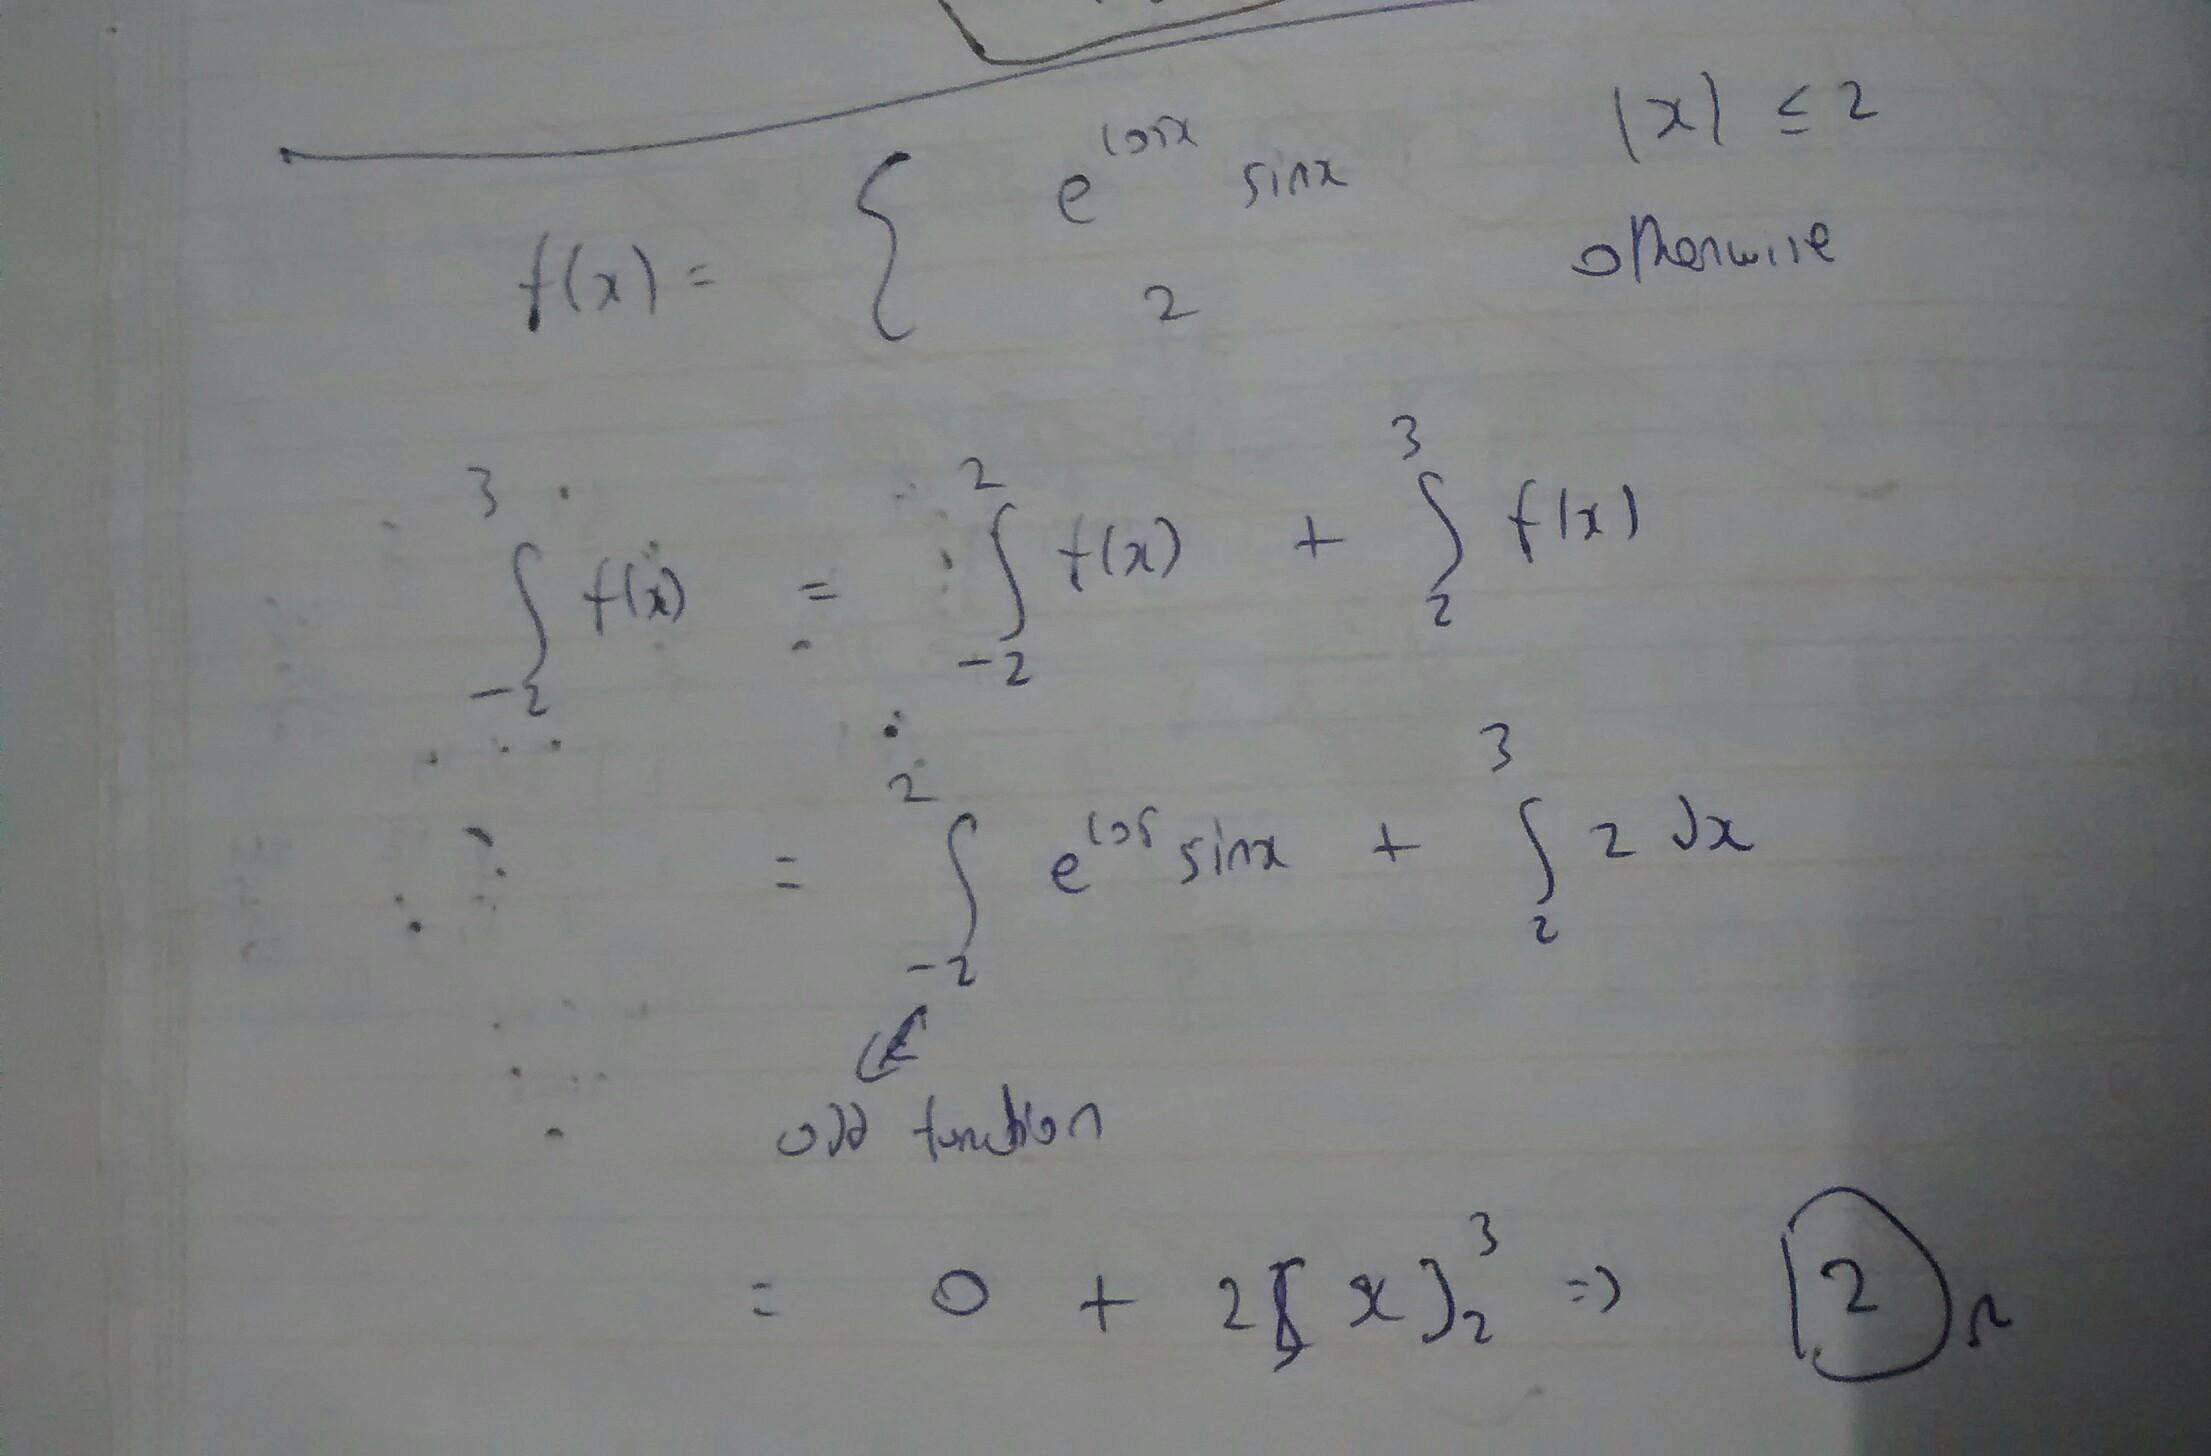 f(x) = { e^{cosx} sinx |x| ≤ 2
2 otherwise
∫_{-2}^{3} f(x) = ∫_{-2}^{2} f(x) + ∫_{2}^{3} f(x)
= ∫_{-2}^{2} e^{cos} sinx + ∫_{2}^{3} 2 dx
odd function
= 0 + 2[x]_{2}^{3} ⇒ 2